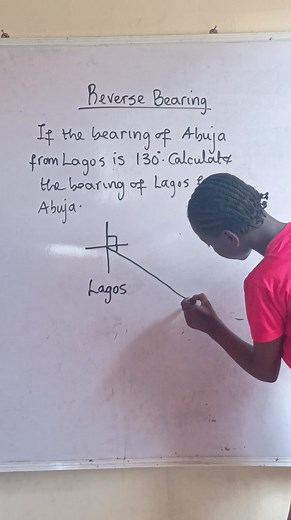 Reverse Bearing
If the bearing of Abuja
from Lagos is 130°. Calculate
the bearing of Lagos
Abuja.
Lagos